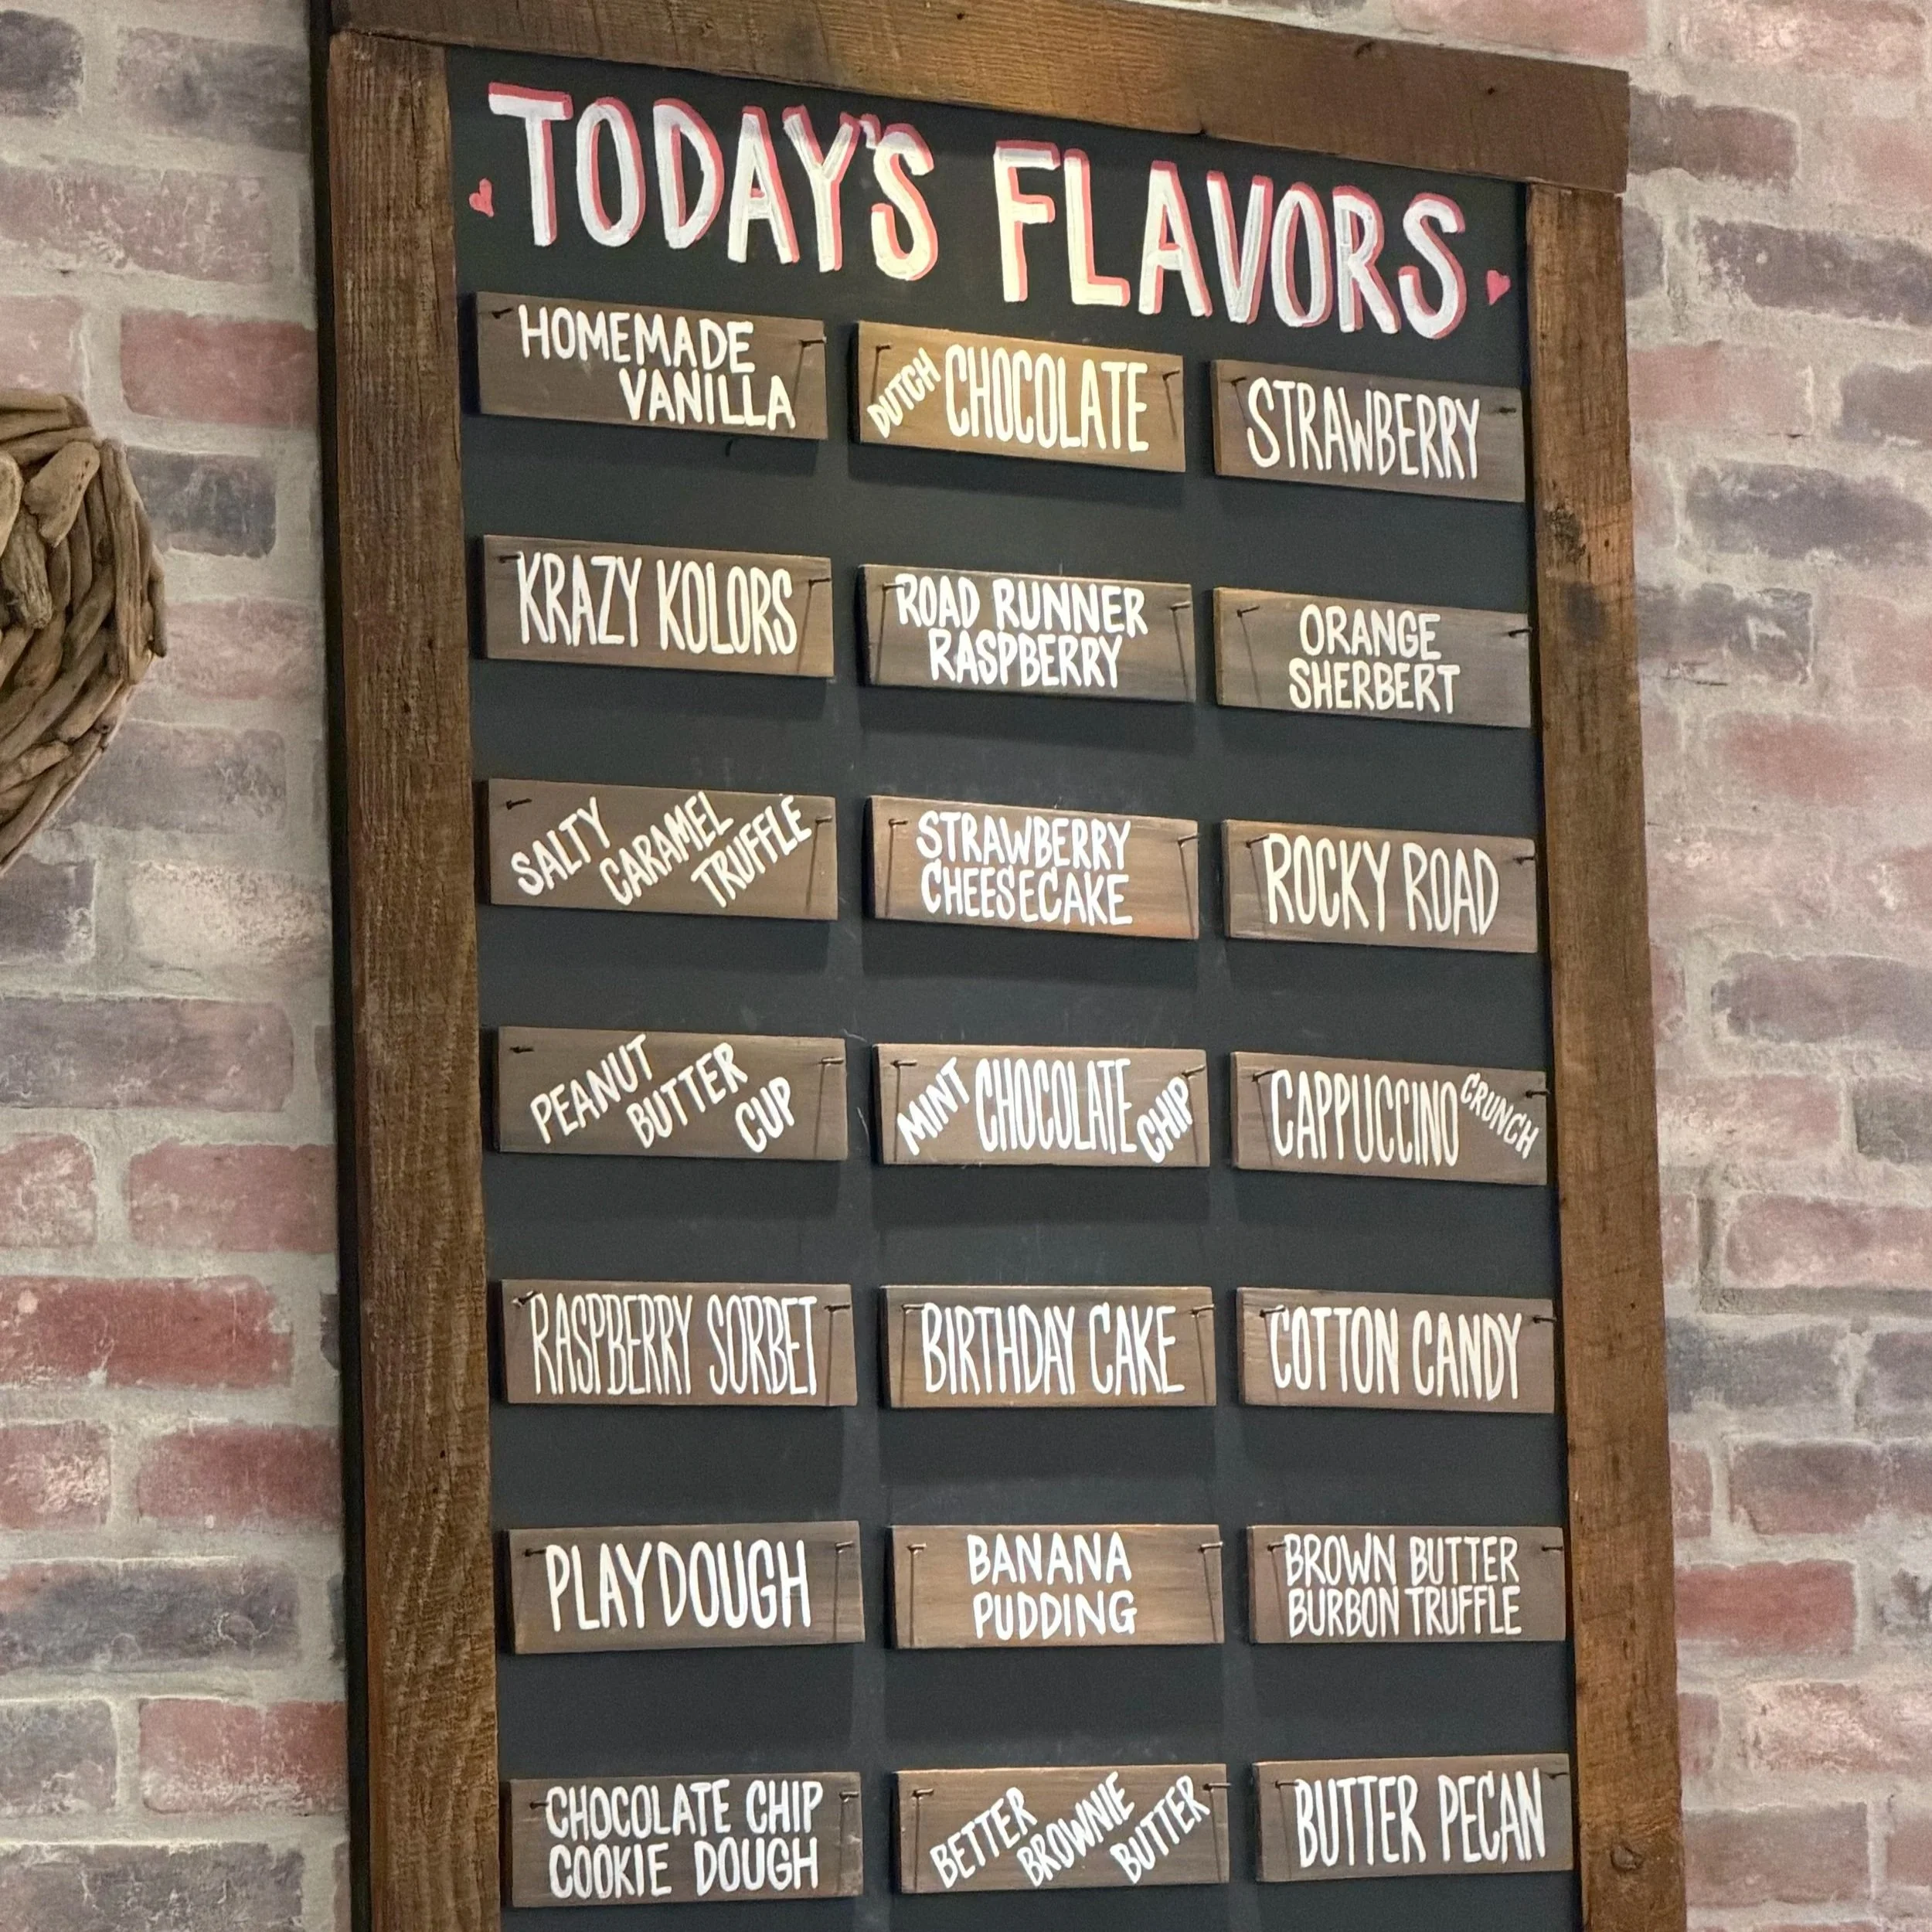 TODAY'S FLAVORS
HOMEMADE
VANILLA
DUTCH CHOCOLATE
STRAWBERRY
KRAZY KOLORS
ROAD RUNNER
RASPBERRY
ORANGE
SHERBERT
SALTY
CARAMEL
TRUFFLE
STRAWBERRY
CHEESECAKE
ROCKY ROAD
PEANUT
BUTTER
CUP
MINT CHOCOLATE CHIP
CAPPUCCINO CRUNCH
RASPBERRY SORBET
BIRTHDAY CAKE
COTTON CANDY
PLAYDOUGH
BANANA
PUDDING
BROWN BUTTER
BURBON TRUFFLE
CHOCOLATE CHIP
COOKIE DOUGH
BETTER
BROWNIE
BUTTER
BUTTER PECAN